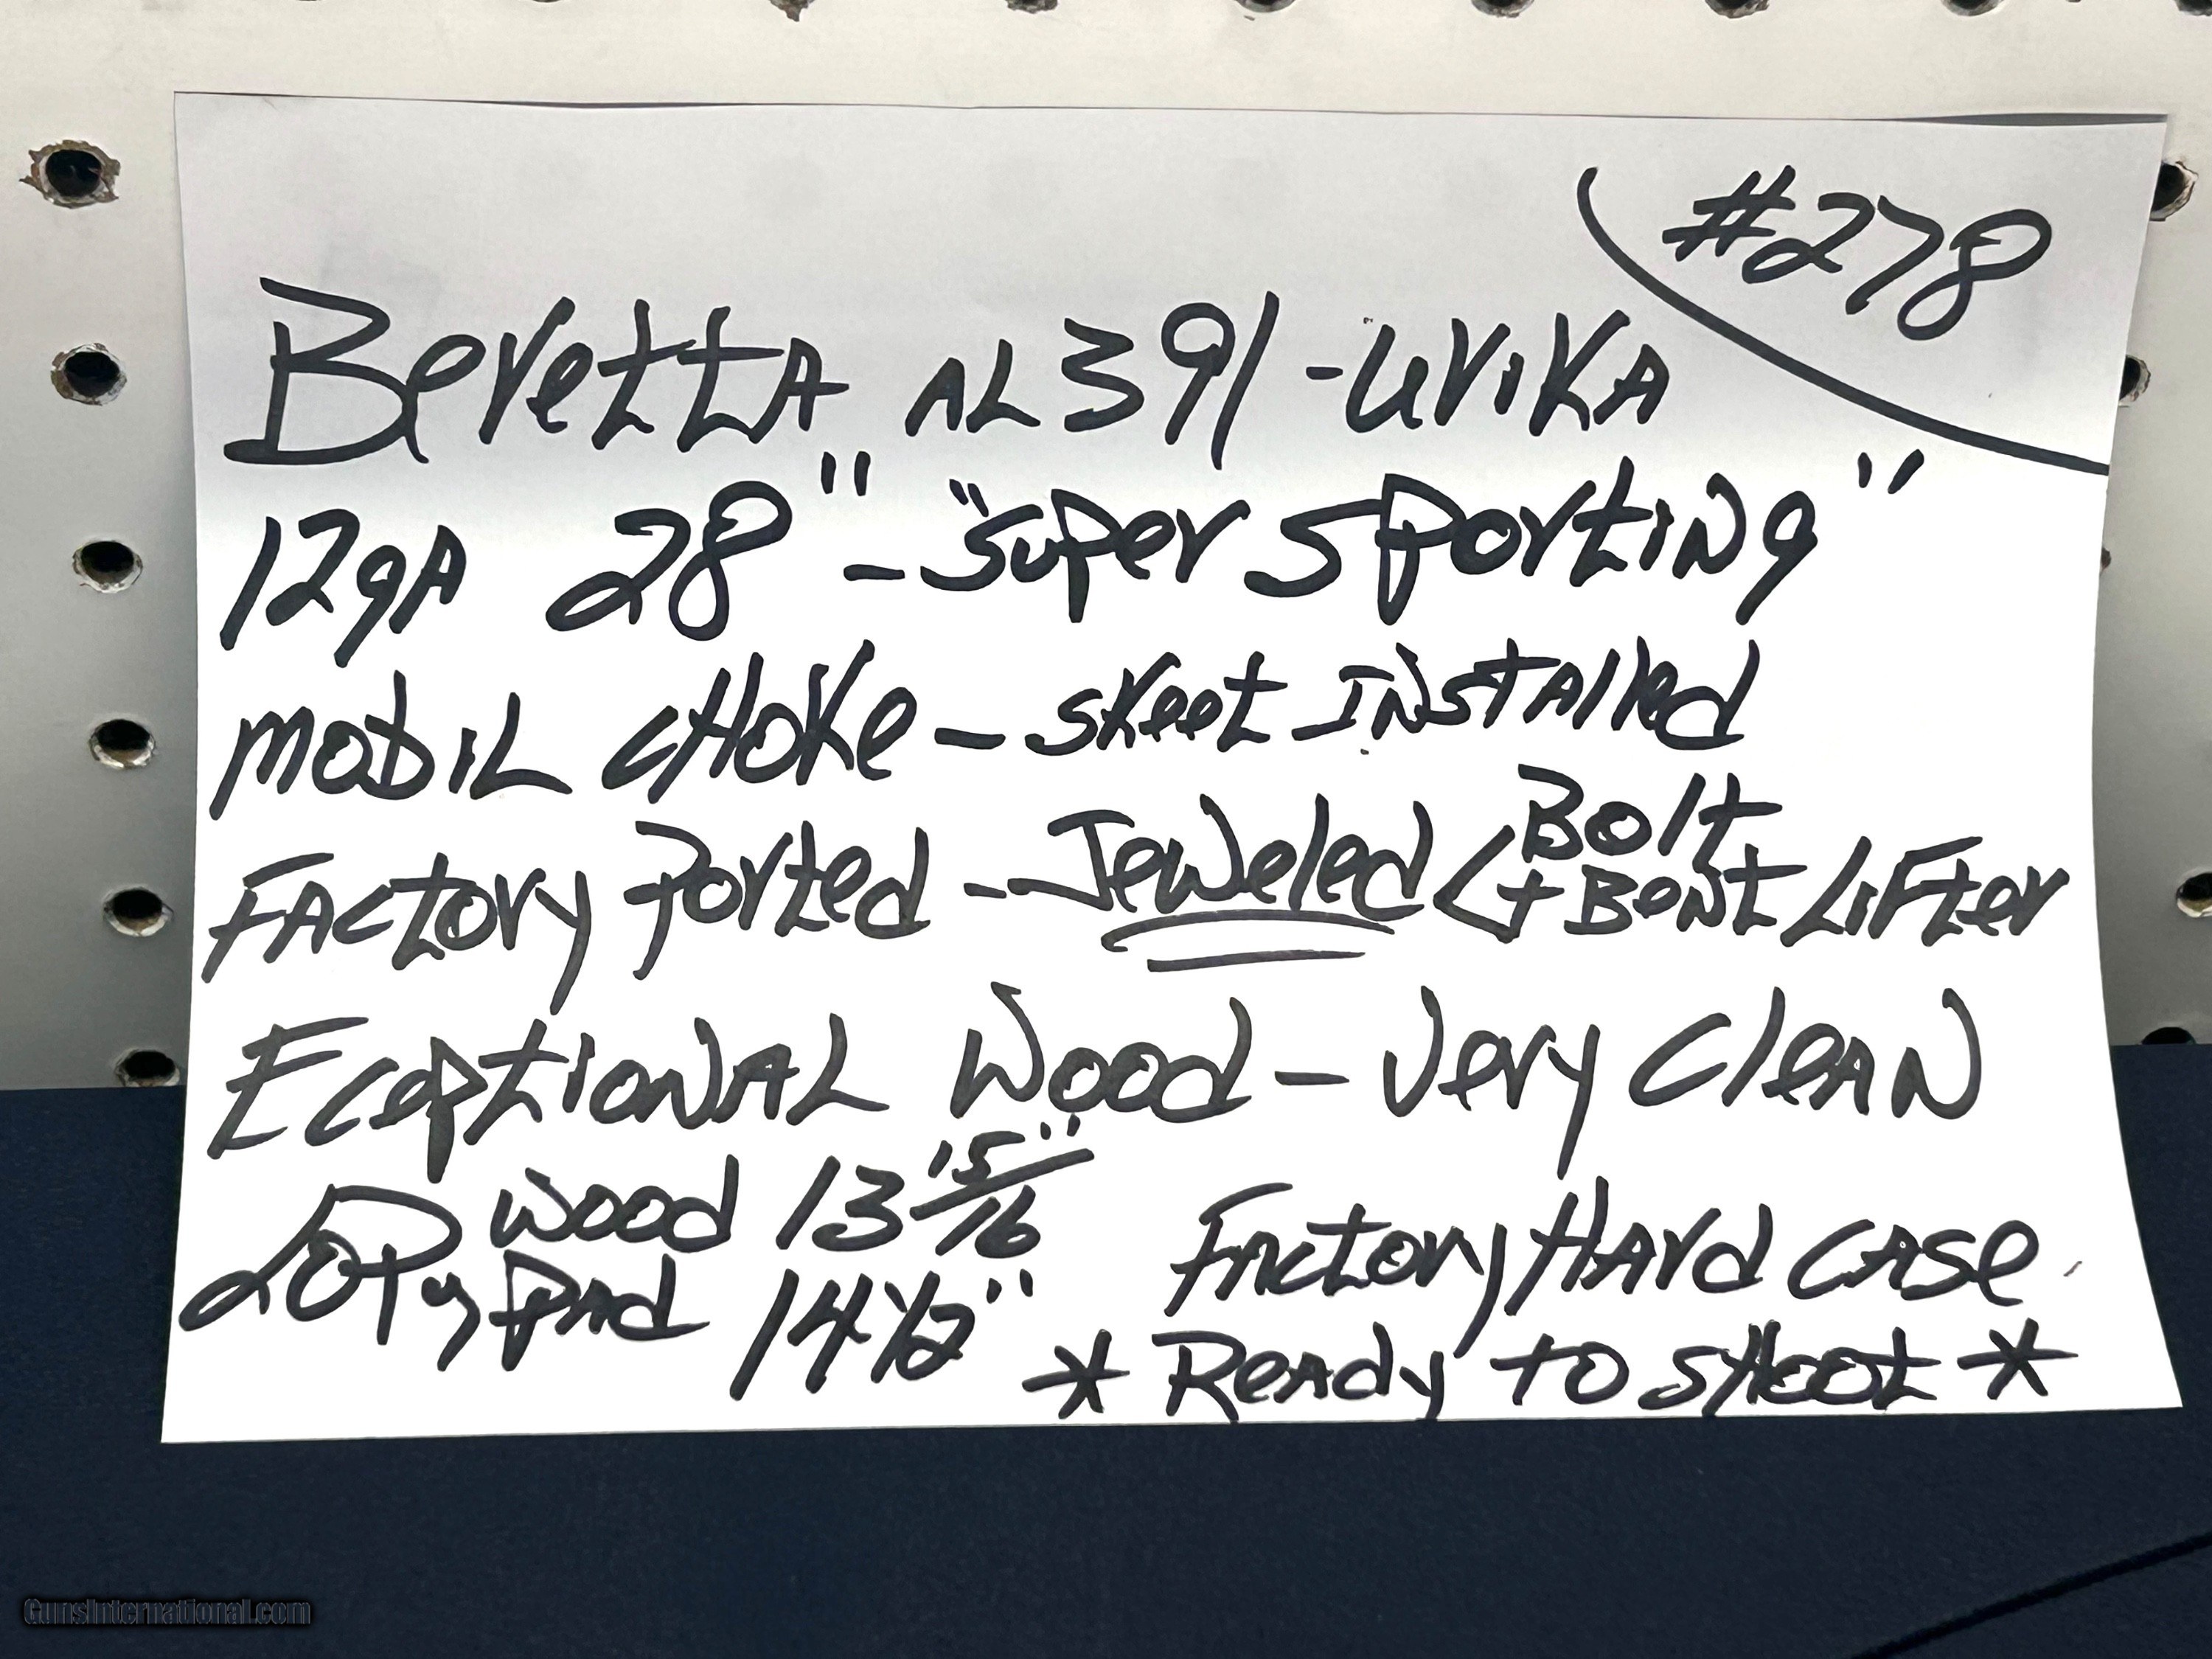 #278
Beretta AL391-Urika
12gA 28" - "Super Sporting"
Mobil Choke - Skeet Installed
Factory Ported - Jeweled < Bolt + Bent Lifter
Eceptional Wood - Very Clean
LOP wood 13 15/16"
by Pad 14 1/2"
Factory Hard Case
* Ready to Shoot *
GunsInternational.com